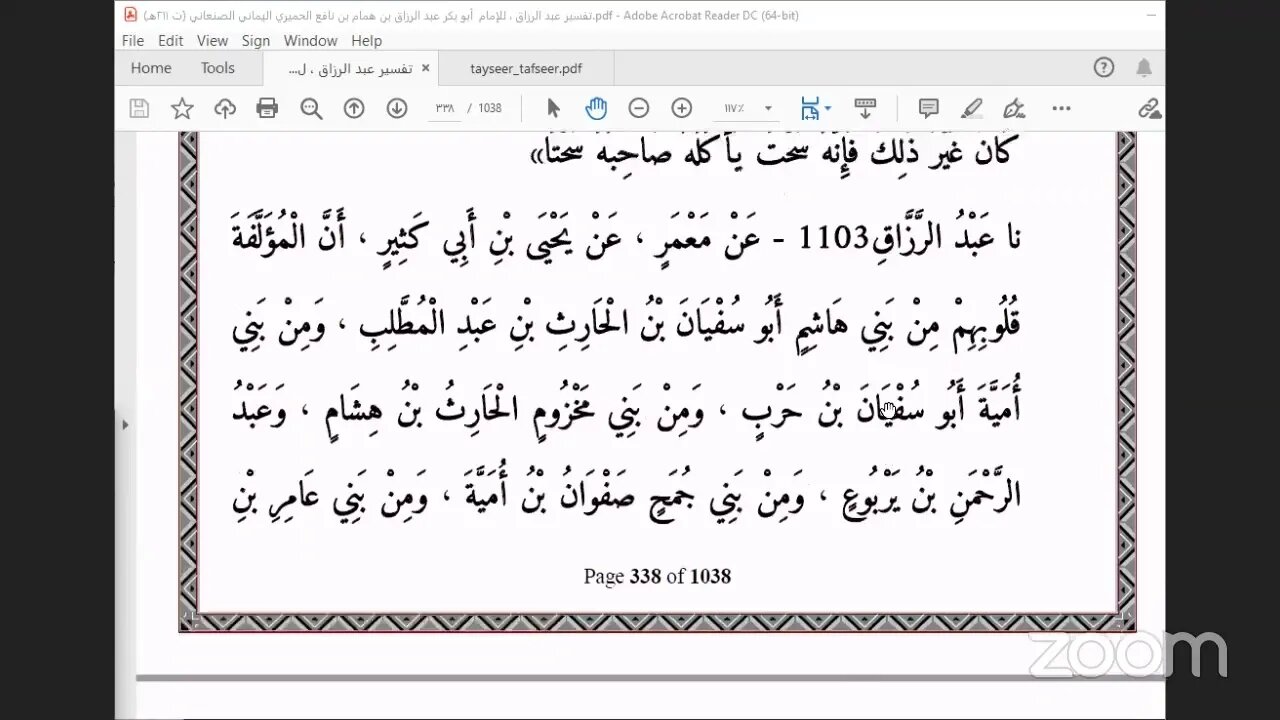 تفسير عبد الرزاق ، للإمام أبو بكر عبد الرزاق بن همام بن نافع الحميري اليماني الصنعاني (ت ٢١١هـ).pdf - Adobe Acrobat Reader DC (64-bit)
File Edit View Sign Window Help
Home Tools تفسير عبد الرزاق ، ل... × tayseer_tafseer.pdf
٣٣٨ / 1038 ١١٧٪
كان غير ذلِك فإِنه سحت يأكله صاحِبه سحتا»
نا عَبْدُ الرَّزَّاقِ1103 - عَنْ مَعْمَرٍ ، عَنْ يَحْيَى بْنِ أَبِي كَثِيرٍ ، أَنَّ الْمُؤَلَّفَةَ
قُلُوبِهِمْ مِنْ بَنِي هَاشِمٍ أَبُو سُفْيَانَ بْنُ الْحَارِثِ بْنِ عَبْدِ الْمُطَّلِبِ ، وَمِنْ بَنِي
أُمَيَّةَ أَبُو سُفْيَانَ بْنُ حَرْبٍ ، وَمِنْ بَنِي مَخْزُومٍ الْحَارِثُ بْنُ هِشَامٍ ، وَعَبْدُ
الرَّحْمَنِ بْنُ يَرْبُوعٍ ، وَمِنْ بَنِي جُمَحٍ صَفْوَانُ بْنُ أُمَيَّةَ ، وَمِنْ بَنِي عَامِرِ بْنِ
Page 338 of 1038
zoom